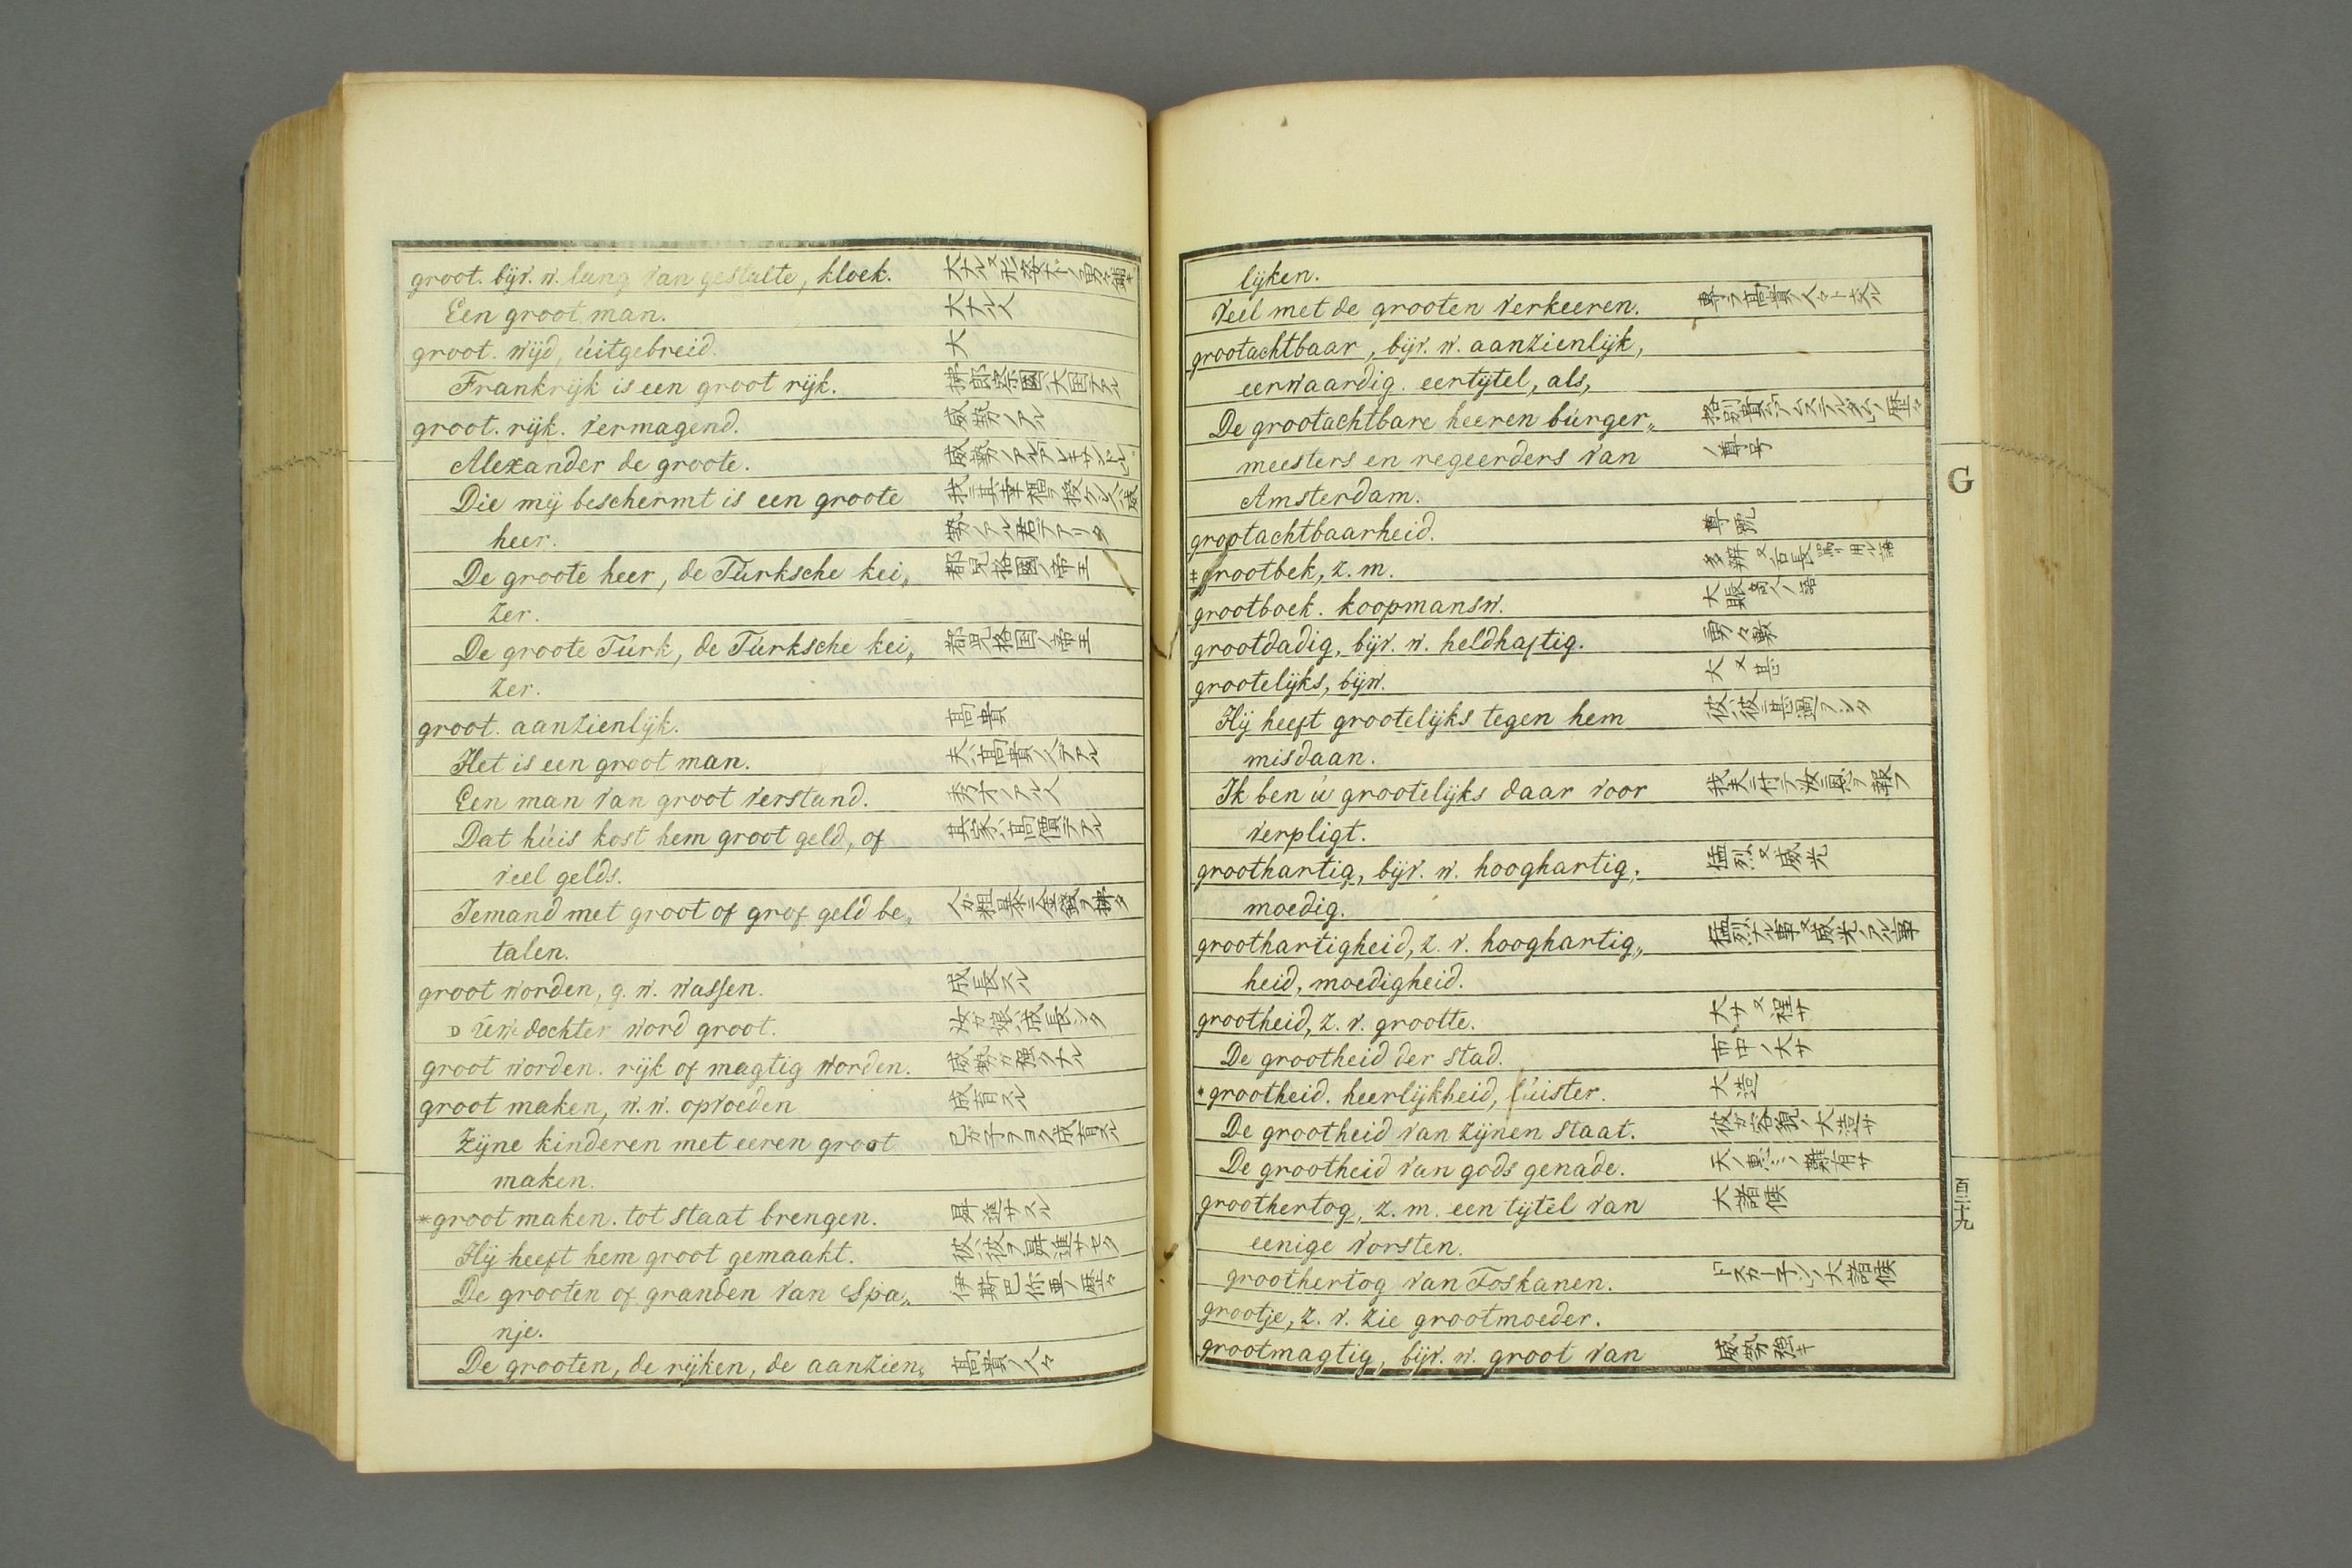 groot. bijv. w. lang van gestalte, kloek. 大ナル又形姿ナドノ
Een groot man. 大ナル人
groot. wijd, úitgebreid. 大
Frankrijk is een groot rijk. 拂郎察國ハ大国テアル
groot. rijk. vermagend. 威勢ノアル
Alexander de groote. 威勢ノアル
Die mij beschermt is een groote 我ニ其幸福ヲ授ケシ人ハ威
heer. 勢アル君テアリタ
De groote heer, de Túrksche kei„ 都児格國ノ帝王
zer.
De groote Túrk, de Túrksche kei„ 都児格国ノ帝王
zer.
groot. aanzienlijk. 高貴
Het is een groot man. 夫ハ高貴ノ人テアル
Een man van groot verstand. 秀才ノアル人
Dat húis kost hem groot geld, of 其家ハ高價テアル
veel gelds.
Iemand met groot of grof geld be„ 人ガ粗暴ニ金銀ヲ拂タ
talen.
groot worden, g. w. wassen. 成長スル
D Uw dochter word groot. 汝ガ娘ハ成長シタ
groot worden. rijk of magtig worden. 威勢ガ強クナル
groot maken, w. w. opvoeden 成育スル
Zijne kinderen met eeren groot 己ガ子ヲヨク成育スル
maken.
*groot maken. tot staat brengen. 昇進サスル
Hij heeft hem groot gemaakt. 彼ハ彼ヲ昇進サセタ
De grooten of granden van Spa„ 伊斯巴你亜ノ歴々
nje.
De grooten, de rijken, de aanzien„ 高貴ノ人々
lijken.
Veel met de grooten verkeeren. 専ラ高貴ノ人々ト交ル
grootachtbaar, bijv. w. aanzienlijk,
eerwaardig. eertijtel, als,
De grootachtbare heeren búrger„ 格別貴キアムステルダムノ歴々
meesters en regeerders van ノ尊号
Amsterdam.
grootachtbaarheid. 尊
‡grootbek, z. m. 多辨又舌長 罵ニ用ル語
grootboek. koopmansw. 大賬 商人ノ語
grootdadig, bijv. w. heldhaftig. 勇々敷
grootelijks, bijw. 大又甚
Hij heeft grootelijks tegen hem 彼ハ彼ニ甚過アシタ
misdaan.
Ik ben ú grootelijks daar voor 我夫ニ付テ汝ニ恩ヲ報フ
verpligt.
groothartig, bijv. w. hooghartig, 猛烈又威光
moedig.
groothartigheid, z. v. hooghartig„ 猛烈ナル事又威光アル事
heid, moedigheid.
grootheid, z. v. grootte. 大サ又程サ
De grootheid der stad. 市中ノ大サ
*grootheid. heerlijkheid, lúister. 大造
De grootheid van zijnen staat. 彼ガ容貌ノ大造サ
De grootheid van gods genade. 天ノ恵ミノ難有サ
groothertog, z. m. een tijtel van 大諸候
eenige vorsten.
groothertog van Foskanen. トスカーネンノ大諸候
grootje, z. v. zie grootmoeder.
grootmagtig, bijv. w. groot van 威勢強キ
G
百三十九